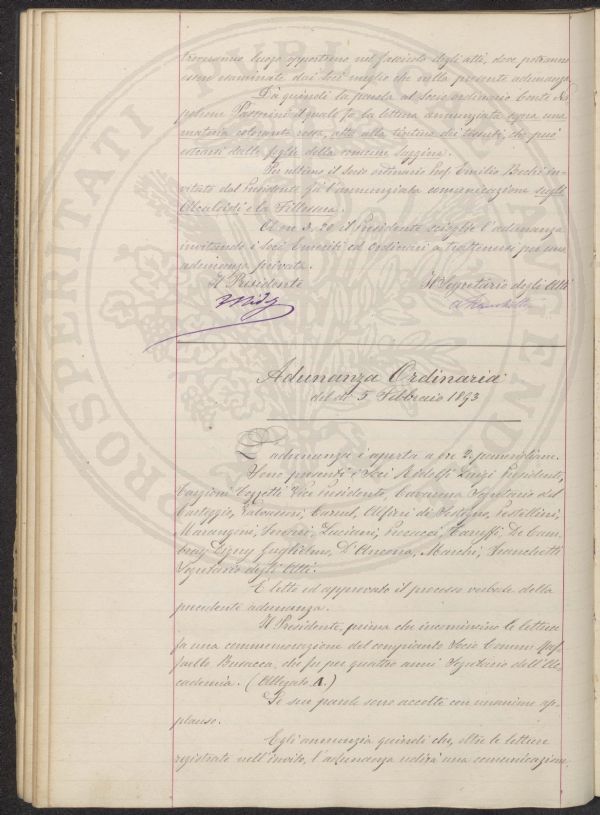 troveranno luogo opportuno nel fascicolo degli atti, dove potranno
essere esaminate dai Soci meglio che nella presente adunanza.
Dà quindi la parola al Socio ordinario Conte Na-
poleone Passerini il quale fa la lettura annunziata sopra una
materia colorante rossa, atta alla tintura dei tessuti, che può
estrarsi dalle foglie della comune Saggina.
Per ultimo il Socio ordinario Prof. Emilio Bechi in-
vitato dal Presidente fa l'annunziata comunicazione sugli
Alcaloidi e la Fillossera.
A ore 3,20 il Presidente scioglie l'adunanza
invitando i Soci Emeriti ed Ordinari a trattenersi per una
adunanza privata.
Il Presidente Il Segretario degli Atti
A Franchetti
Adunanza Ordinaria
del dì 5 Febbraio 1893
L'adunanza è aperta a ore 2. pomeridiane.
Sono presenti i Soci Ridolfi Luigi Presidente,
Targioni Tozzetti Vice Presidente, Caruso Segretario del
Carteggio, Alfieri di Sostegno, Pestellini,
Marangini, Luciani, Pucci, Caruffi, De Cam-
bray Digny Guglielmo, D'Ancona, Marchi, Franchetti
Segretario degli Atti.
È letto ed approvato il processo verbale della
precedente adunanza.
Il Presidente, prima che incomincino le letture
fa una commemorazione del compianto Socio Comm Prof
Busacca, che fu per quattro anni Segretario dell'Ac-
cademia. (Allegato A.)
Le sue parole sono accolte con unanime ap-
plauso.
Egli annunzia quindi che, oltre le letture
registrate nell'invito, l'adunanza udirà una comunicazione